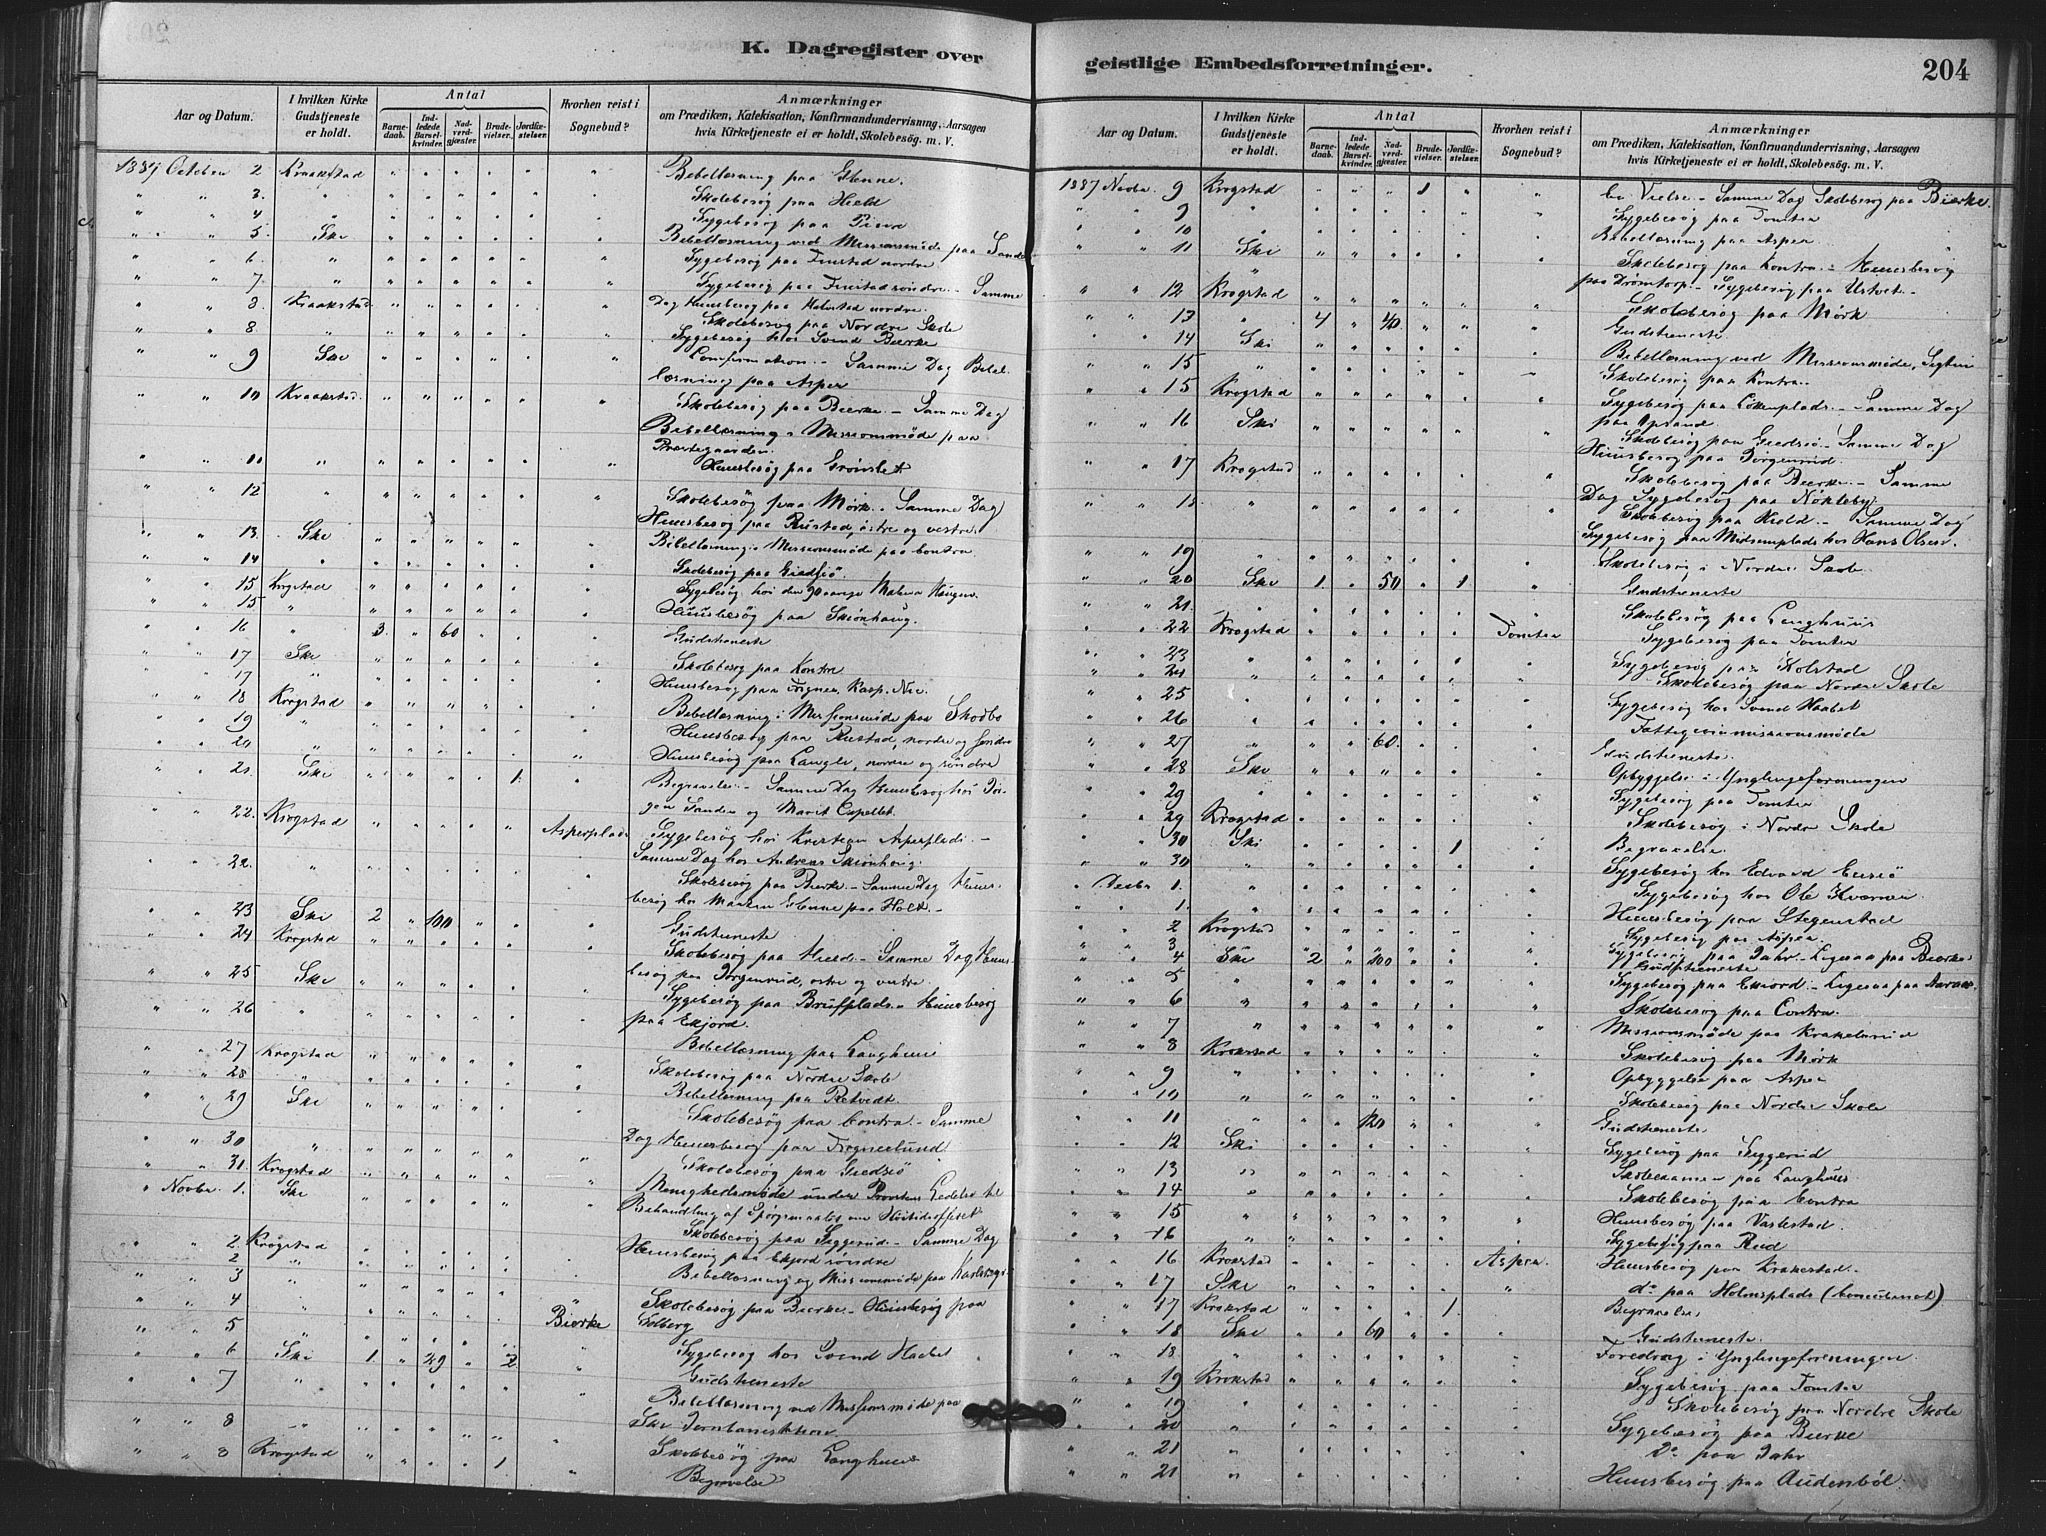 K. Dagregister over
geistlige Embedsforretninger.
204
Aar og Datum.
I hvilken Kirke Gudstjeneste er holdt.
Antal
Barnedaab.
Indledede Barselkvinder.
Nadverdgjæster.
Brudevielser.
Jordfæstelser.
Hvorhen reist i Sognebud?
Anmærkninger
om Prædiken, Katekisation, Konfirmandundervisning, Aarsagen
hvis Kirketjeneste ei er holdt, Skolebesög. m. V.
1887 October 2 Kraakstad " " " " " " Bibellæsning paa Glenne.
" " 3. " " " " " " " Skolebesøg paa Hield
" " 4 " " " " " " " Sygebesøg paa
" " 5 Ski " " " " " " Bibellæsning ved Missionsmøde paa Sander
" " 6. " " " " " " " Sygebesøg paa Finstad nordre
" " 7 " " " " " " " Sygebesøg paa Finstad søndre – Samme
Dag Huusbesøg paa Halvstad nordre.
" " 8 Kraakstad " " " " " " Skolebesøg paa Nordre Skole
" " 8 " " " " " " " Sygebesøg hos Svend Bierke
" " 9 Ski " " " " " " Confirmation. – Samme Dag Bibel-
læsning paa Asper
" " 10 Kraakstad " " " " " " Skolebesøg paa Bierke – Samme Dag
Bibellæsning i Missionsmøde paa
Præstegaarden.
" " 11 " " " " " " " Huusbesøg paa Grønslet
" " 12 " " " " " " " Skolebesøg paa Mørk – Samme Dag
Huusbesøg paa Rustad, østre og vestre.
" " 13. Ski " " " " " " Bibellæsning i Missionsmøde paa Contra
" " 14 " " " " " " " Skolebesøg paa Giedsiö.
" " 15 Krogstad " " " " " " Sygebesøg hos den 90 aarige Haugen
" " 15 " " " " " " " Huusbesøg paa Skiønhaug.
" " 16 " 3. " 60 " " " Gudstieneste
" " 17 Ski " " " " " " Skolebesøg paa Kontra
" " 17 " " " " " " " Huusbesøg paa
" " 18 Krogstad " " " " " " Bibellæsning i Missionsmøde paa Skodbo
" " 19 " " " " " " " Huusbesøg paa Rustad, nordre og søndre
" " 20 " " " " " " " Huusbesøg paa Langli, nordre og søndre
" " 21. Ski " " " " 1. " Begravelse. – Samme Dag Huusbesøg hos Jör-
gen Sander og Marit Capellet.
" " 22. Krogstad " " " " " Asperplads Sygebesøg hos Kristian Asperplads. –
Samme Dag hos Andreas Skiønhaug.
" " 22. " " " " " " " Skolebesøg paa Bierke – Samme Dag Huus-
besøg hos Glenne paa Holt. –
" " 23 Ski 2 " 100 " " " Gudstieneste
" " 24 Krogstad " " " " " " Skolebesøg paa Hield – Samme Dag Huus-
besøg paa Jörgenrud, østre og vestre
" " 25 Ski " " " " " " Sygebesøg paa Huusbesøg
paa Ekjord.
" " 26 " " " " " " "
" " 27 Krogstad " " " " " " Bibellæsning paa Langhuus
" " 28 " " " " " " " Skolebesøg paa Nordre Skole
" " 29 Ski " " " " " " Bibellæsning paa Retvedt.
Skolebesøg paa Contra – Samme
" " 30 " " " " " " " Dag Huusbesøg paa Fognerlund
" " 31. Krogstad " " " " " " Skolebesøg paa Giedsiö
" Novbr. 1. Ski " " " " " " Menighedsmøde under Provstens Ledelse til
Behandling af Spørgsmaalet om Høitidsofferet
Skolebesøg paa Siggerud – Samme Dag
" " 2 Krogstad " " " " " " Huusbesøg paa Ekjord søndre
" " 2 " " " " " " " Bibellæsning og Missionsmøde paa
" " 3 " " " " " " " Skolebesøg paa Bierke – Huusbesøg paa
Solberg
" " 4 " " " " " "
" " 5 " " " " " " Bierke Sygebesøg hos Svend Haabet
" " 6 Ski 1. " 29 " 2 " Gudstieneste
" " 7 " " " " " " " Bibellæsning ved Missionsmøde paa
Ski Jernbanestation.
" " 8 " " " " " " " Skolebesøg paa Langhuus
" " 8 Krogstad " " " " 1 " Begravelse
Aar og Datum.
I hvilken Kirke Gudstjeneste er holdt.
Antal
Barnedaab.
Indledede Barselkvinder.
Nadverdgjæster.
Brudevielser.
Jordfæstelser.
Hvorhen reist i Sognebud?
Anmærkninger
om Prædiken, Katekisation, Konfirmandundervisning, Aarsagen
hvis Kirketjeneste ei er holdt, Skolebesög. m. V.
1887 Novbr. 9 Krogstad " " " 1 " " Vielse – Samme Dag Skolebesøg paa Bierke.
" " 9 " " " " " " " Sygebesøg paa Tomter
" " 10 " " " " " " " Bibellæsning paa Asper.
" " 11 Ski " " " " " " Skolebesøg paa Kontra. – Huusbesøg
paa Drömtorp. – Sygebesøg paa –
" " 12 Krogstad " " " " " " Skolebesøg paa Mørk
" " 13 " 4 " 40 " " " Gudstieneste
" " 14 Ski " " " " " " Bibellæsning ved Missionsmøde,
" " 15 " " " " " " " Skolebesøg paa Kontra.
" " 15 Krogstad " " " " " " Sygebesøg paa – Samme Dag
paa Opsand.
" " 16 Ski " " " " " " Skolebesøg paa Giedsiö – Samme Dag
Huusbesøg paa Jörgenrud.
" " 17 Krogstad " " " " " " Skolebesøg paa Bierke. – Samme
Dag Sygebesøg paa Nökleby.
" " 18. " " " " " " " Skolebesøg paa Hield. – Samme Dag
Sygebesøg paa hos Hans Olsen.
" " 19 " " " " " " " Skolebesøg i Nordre Skole.
" " 20 Ski 1. " 50 " 1 " Gudstieneste
" " 21. " " " " " " " Skolebesøg paa Langhuus
" " 22 Krogstad " " " " " Tomter Sygebesøg paa Tomter
" " 23 " " " " " " " Sygebesøg paa Holstad
" " 24 " " " " " " " Skolebesøg paa Nordre Skole
" " 25 " " " " " " " Sygebesøg hos Svend Haabet
" " 26 " " " " " " " Fattigcommissionsmøde
" " 27 " " " 60. " " " Gudstieneste
" " 28 Ski " " " " " " Opbyggelse i Ynglingeforeningen
" " 29 " " " " " " " Sygebesøg paa Tomter
" " 29 Krogstad " " " " " " Skolebesøg i Nordre Skole
" " 30 Ski " " " " 1 " Begravelse
" " 30 " " " " " " " Sygebesøg hos Edvard
" Decbr. 1. " " " " " " " Sygebesøg hos Ole Kværner
" " 1. " " " " " " " Huusbesøg paa Stegenstad
" " 2 Krogstad " " " " " " Sygebesøg paa Asper
" " 3 " " " " " " " Sygebesøg paa Dahr – Ligesaa paa Bierke.
" " 4 Ski 2 " 100 " " " Gudstieneste
" " 5 " " " " " " " Sygebesøg paa Ekjord – Ligesaa paa
" " 6 " " " " " " " Skolebesøg paa Contra.
" " 7 " " " " " " " Missionsmøde paa
" " 8 Krokstad " " " " " " Skolebesøg paa Mørk
" " 9 " " " " " " " Opbyggelse paa Asper
" " 10 " " " " " " " Skolebesøg paa Nordre Skole
" " 11 " " " 120 " " " Gudstieneste
" " 12 Ski " " " " " " Sygebesøg paa Siggerud
" " 13 " " " " " " " Skoleexamen paa Langhuus
" " 14 " " " " " " " Skolebesøg paa Contra
" " 15 " " " " " " " Huusbesøg paa Vastestad.
" " 16 " " " " " " " Sygebesøg paa Rud
" " 16 Krokstad " " " " " Asper. Huusbesøg paa Krakestad.
" " 17 Ski " " " " " " do paa Holmsplads
" " 17 Krakstad " " " " 1. " Begravelse
" " 18 Ski " " 60 " " " Gudstieneste.
" " 18. " " " " " " " Foredrag i Ynglingeforeningen
" " 19 Krokstad " " " " " " Sygebesøg paa Tomter
" " 19 " " " " " " " Skolebesøg paa Nordre Skole
" " 20 " " " " " " " Sygebesøg paa Bierke
" " 21 " " " " " " " Do paa Dahr
" " 21 " " " " " " " Huusbesøg paa Audenböl.